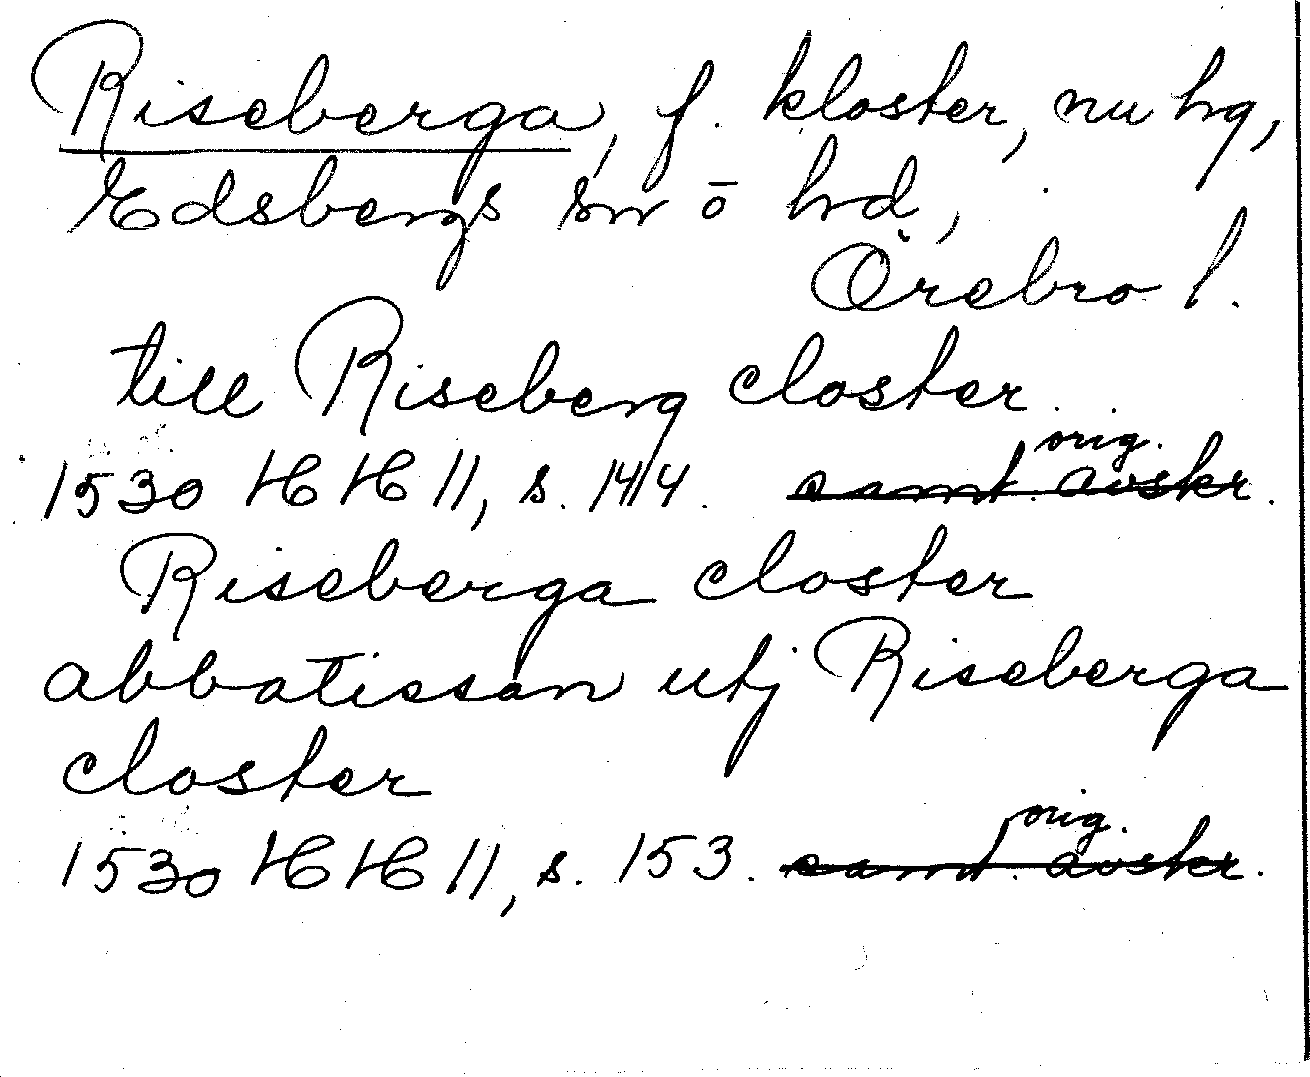 Riseberga, f. kloster, nu hg,
Edsbergs sn o hd,
Örebro l.
till Riseberg closter
1530 HH 11, s. 144. orig.
samt. avskr.
Riseberga closter
abbatissan utj Riseberga
closter
1530 HH 11, s. 153. orig.
samt. avskr.